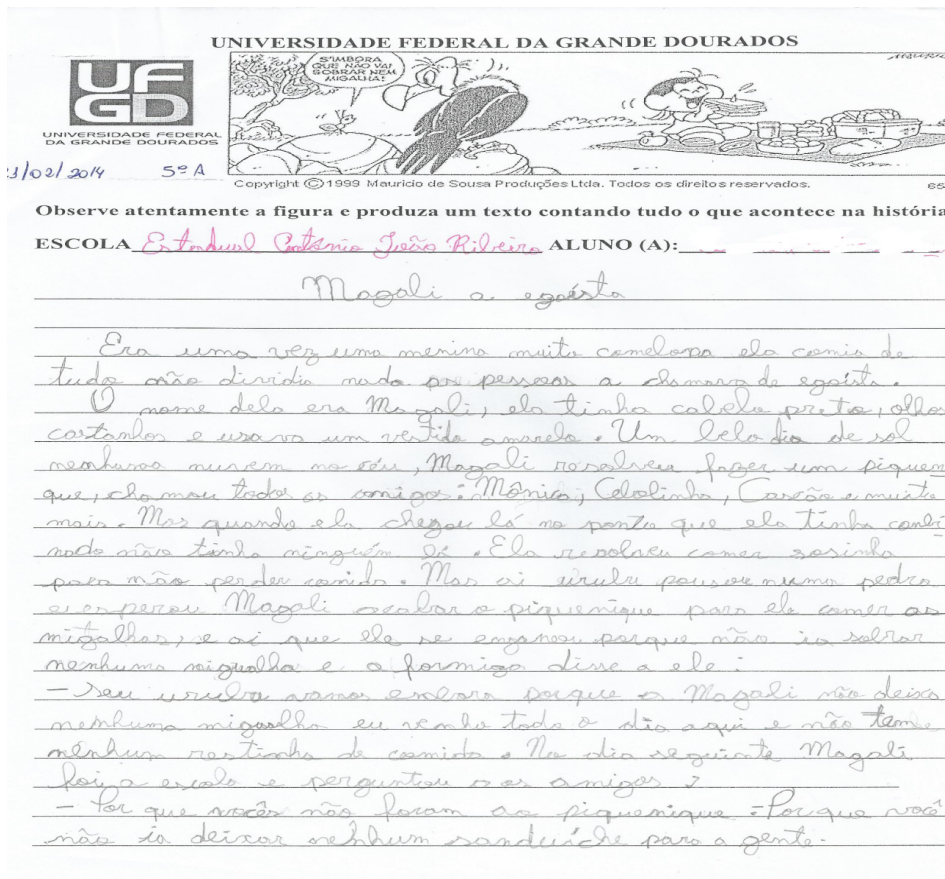 UNIVERSIDADE FEDERAL DA GRANDE DOURADOS
S'IMBORA
QUE NÃO VAI
SOBRAR NEM
MIGALHA!
UFGD
UNIVERSIDADE FEDERAL
DA GRANDE DOURADOS
3/02/2014 5º A
Copyright ©1999 Mauricio de Sousa Produções Ltda. Todos os direitos reservados. 65
Observe atentamente a figura e produza um texto contando tudo o que acontece na história
ESCOLA Estadual Antônia João Ribeiro ALUNO (A):
Magali a egoísta
Era uma vez uma menina muito comelona ela comia de
tudo não dividia nada as pessoas a chamava de egoísta.
O nome dela era Magali, ela tinha cabelo preto, olhos
castanhos e usava um vestido amarelo. Um belo dia de sol
nenhuma nuvem no céu, Magali resolveu fazer um piquen
que, chamou todos os amigos: Mônica, Cebolinha, Cascão e muito
mais. Mas quando ela chegou lá no ponto que ela tinha combi
nado não tinha ninguém lá. Ela resolveu comer sosinha
para não perder comida. Mas ai urubu pousou numa pedra
e esperou Magali acabar o piquenique para ele comer as
migalhas, e ai que ele se enganou porque não ia sobrar
nenhuma migualha e a formiga disse a ele:
- Seu urubu vamos embora porque a Magali não deixa
nenhuma migualha eu venho todo o dia aqui e não tem
nenhum restinho de comida. No dia seguinte Magali
foi a escola e perguntou a os amigos ?
- Por que vocês não foram ao piquenique - Por que você
não ia deixar nenhum sanduíche para a gente.